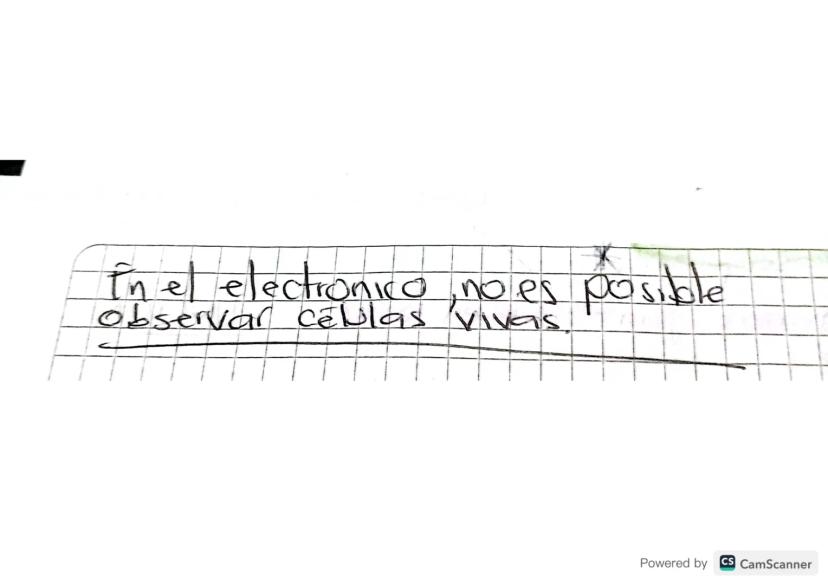 En el electronico, no es posible
observar células vivas.
Powered by CS CamScanner